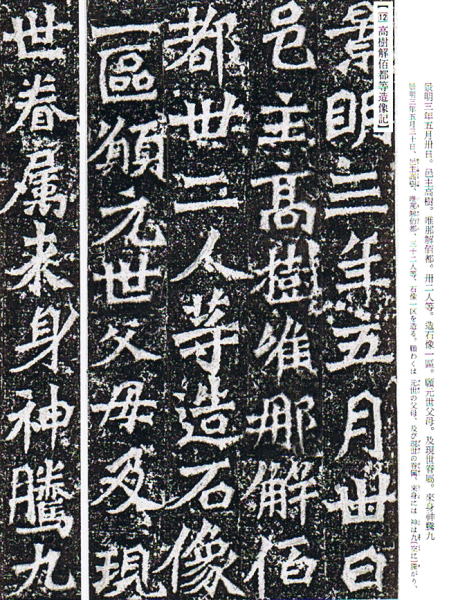 景明三年五月卅日。邑主高樹。唯那解佰都。卅二人等。造石像一區。願元世父母。及現世眷屬。來身神騰九
景明三年五月三十日、邑主高樹、唯那解佰都、三十二人等、石像一区を造る。願わくは 元世の父母、及び現世の眷属、来身には 神は九空に騰がり、
【⑫高樹解佰都等造像記】
景明三年五月卅日
邑主高樹唯那解佰
都卅二人等造石像
一區願元世父母及現
世眷属来身神騰九